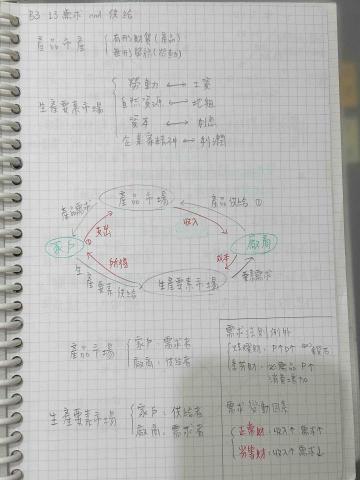 B3 L3 需求 and 供給
產品市場 有形財貨(產品)
無形勞務(勞動)
生產要素市場
勞動 ↔ 工資
自然資源 ↔ 地租
資本 ↔ 利息
企業家精神 ↔ 利潤
產品市場
產品需求
產品供給 ①
支出
收入
家戶
①
廠商
所得
成本
生產要素供給
生產要素市場
要素需求
產品市場
家戶:需求者
廠商:供給者
生產要素市場
家戶:供給者
廠商:需求者
需求法則例外
炫耀財:P↑D↑ 鑽石
季芬財: 品 P↑
消費增加
需求變動因素
正常財:收入↑需求↑
劣等財:收入↑需求↓